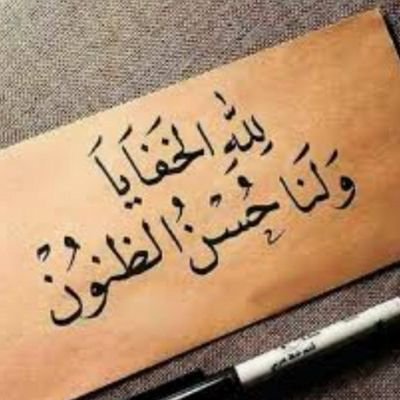 لِلّٰهِ الخَفَايَا
وَلَنَا حُسْنُ الظنُونْ